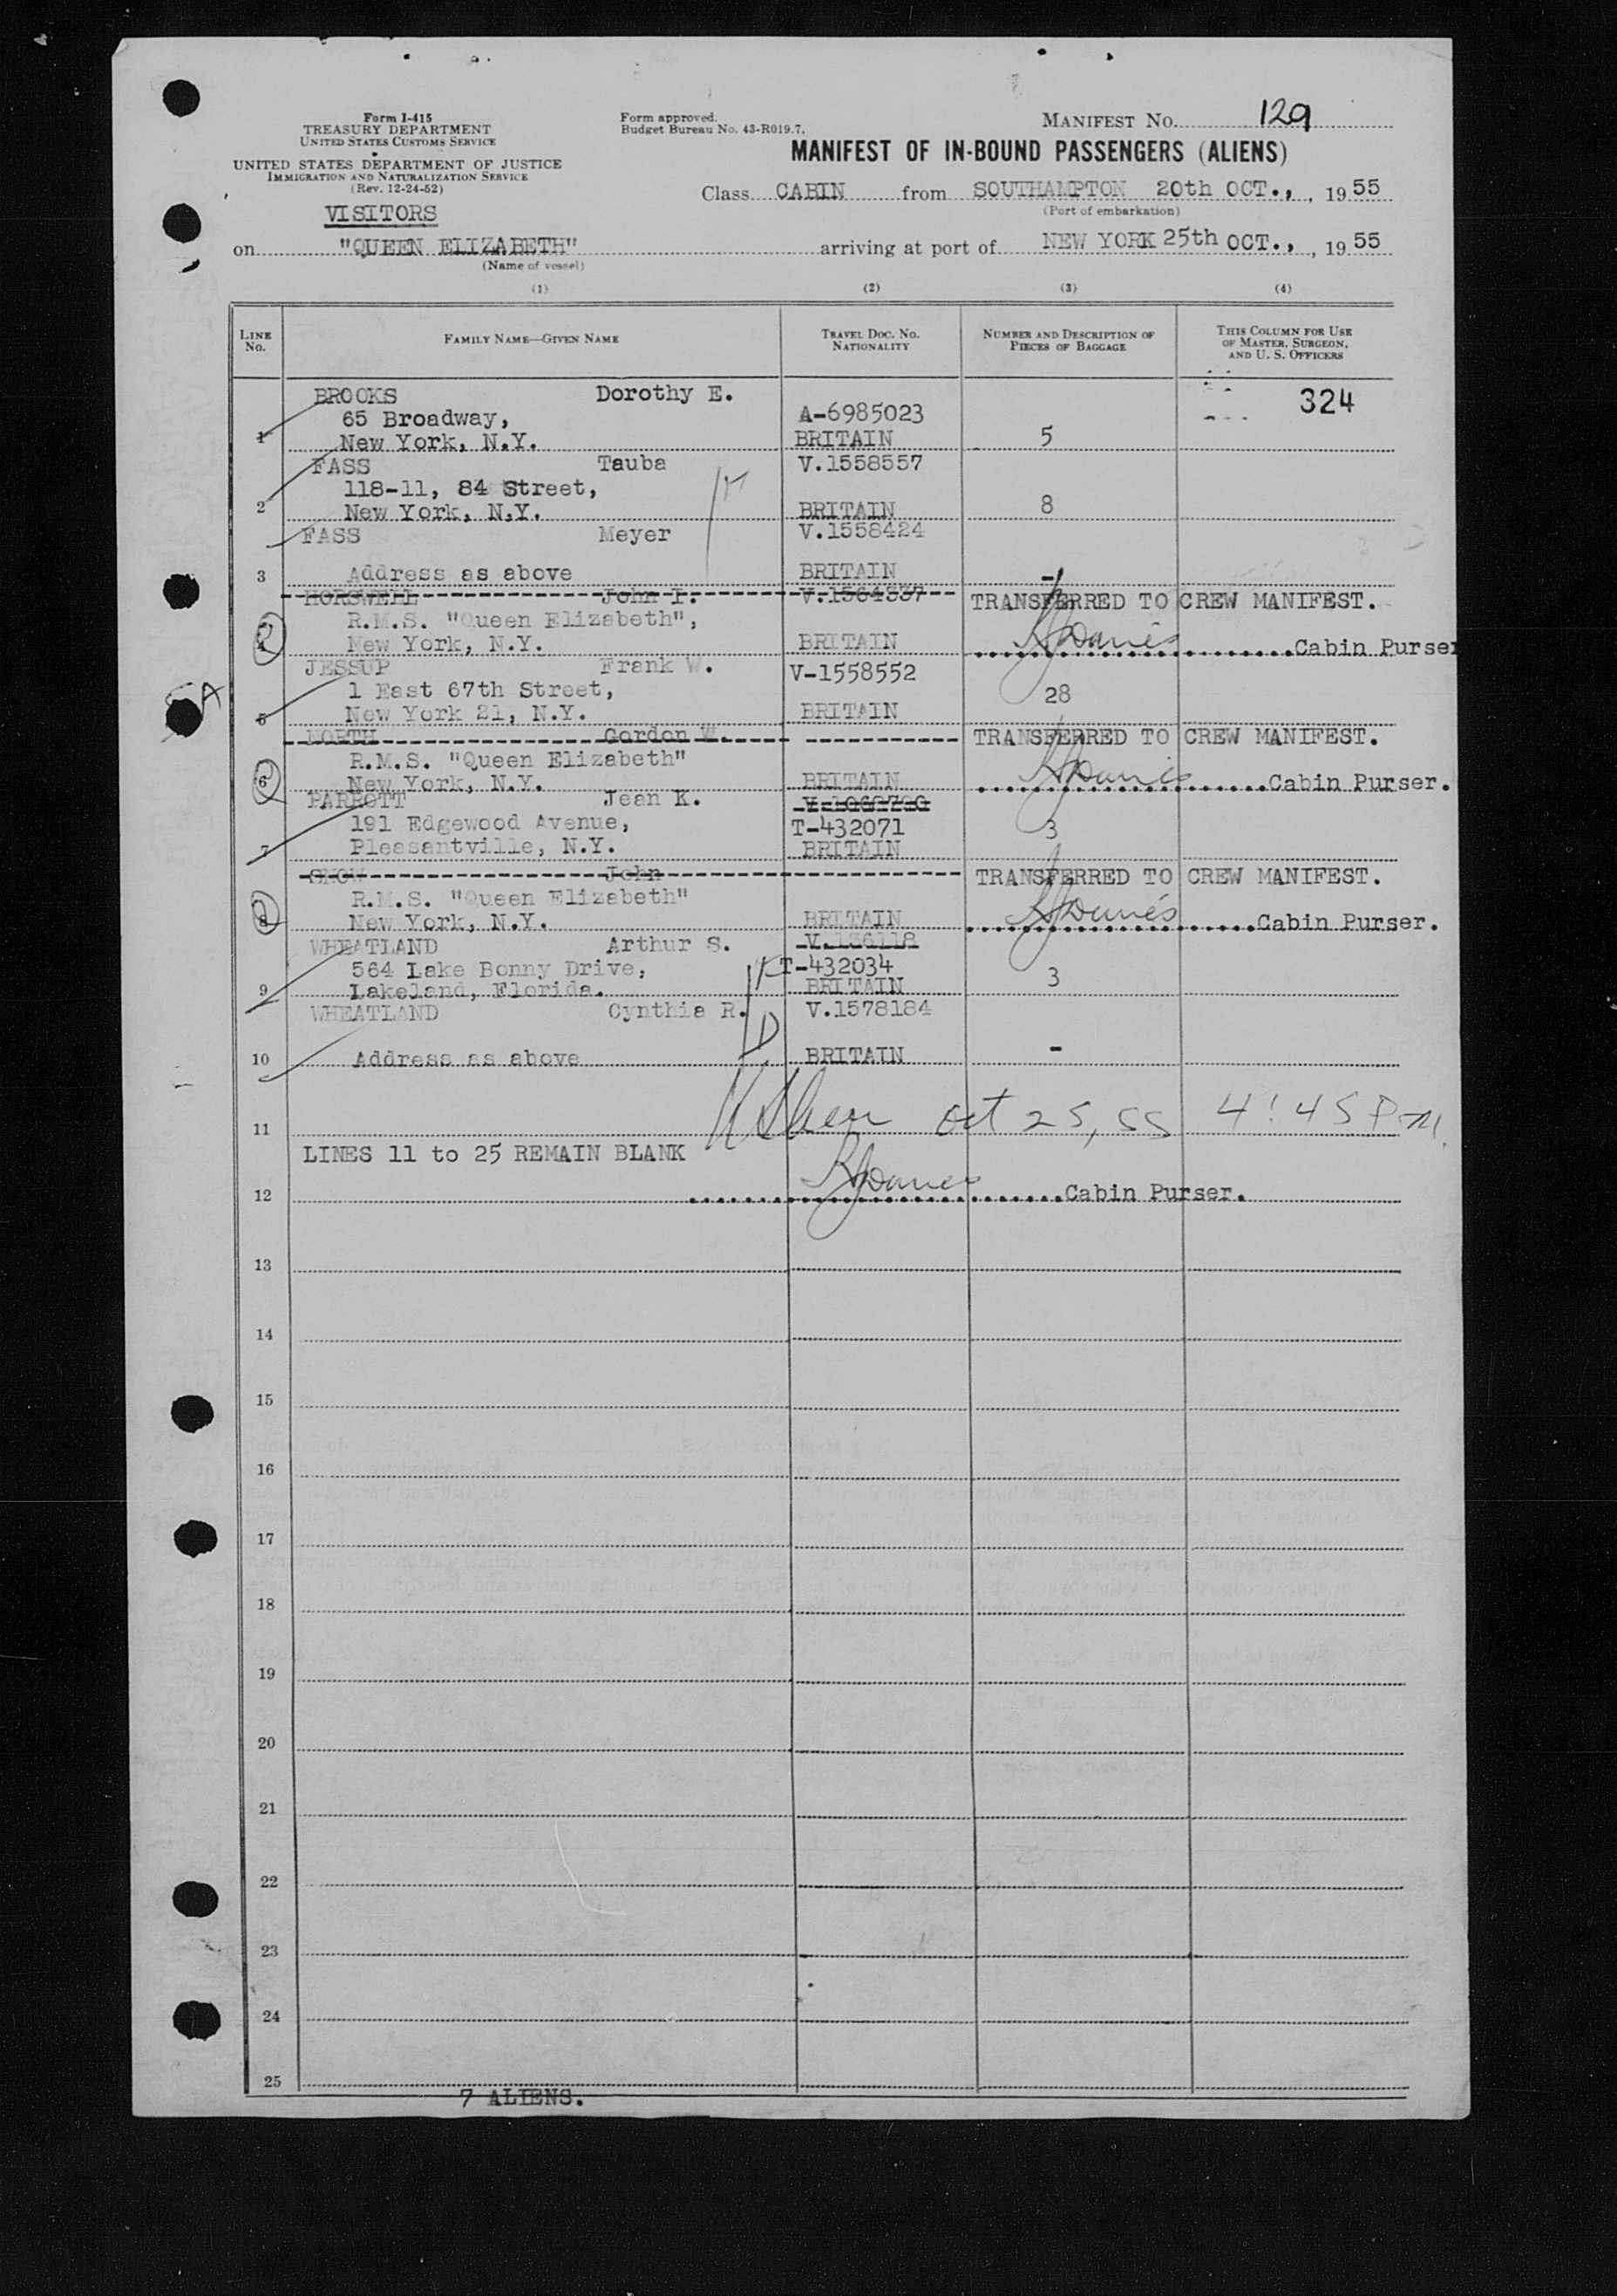 Form I-415
TREASURY DEPARTMENT
UNITED STATES CUSTOMS SERVICE
UNITED STATES DEPARTMENT OF JUSTICE
IMMIGRATION AND NATURALIZATION SERVICE
(Rev. 12-24-52)
Form approved.
Budget Bureau No. 43-R019.7.
MANIFEST NO. 129
MANIFEST OF IN-BOUND PASSENGERS (ALIENS)
Class CABIN from SOUTHAMPTON 20th OCT., , 1955
(Port of embarkation)
VISITORS
on "QUEEN ELIZABETH" arriving at port of NEW YORK 25th OCT., , 1955
(Name of vessel)
(1) (2) (3) (4)
LINE No. FAMILY NAME—GIVEN NAME TRAVEL DOC. NO. NATIONALITY NUMBER AND DESCRIPTION OF PIECES OF BAGGAGE THIS COLUMN FOR USE OF MASTER, SURGEON, AND U. S. OFFICERS
BROOKS Dorothy E. 324
65 Broadway, A-6985023
1 New York, N.Y. BRITAIN 5
FASS Tauba V.1558557
118-11, 84 Street,
2 New York, N.Y. BRITAIN 8
FASS Meyer V.1558424
3 Address as above BRITAIN -
HORSWELL John I. V.1564337 TRANSFERRED TO CREW MANIFEST.
R.M.S. "Queen Elizabeth",
4 New York, N.Y. BRITAIN Cabin Purser
JESSUP Frank W. V-1558552
1 East 67th Street, 28
5 New York 21, N.Y. BRITAIN
NORTH Gordon W. TRANSFERRED TO CREW MANIFEST.
R.M.S. "Queen Elizabeth"
6 New York, N.Y. BRITAIN Cabin Purser.
PARROTT Jean K.
191 Edgewood Avenue, T-432071 3
7 Pleasantville, N.Y. BRITAIN
SNOW John TRANSFERRED TO CREW MANIFEST.
R.M.S. "Queen Elizabeth"
8 New York, N.Y. BRITAIN Cabin Purser.
WHEATLAND Arthur S.
564 Lake Bonny Drive, T-432034 3
9 Lakeland, Florida. BRITAIN
WHEATLAND Cynthia R. V.1578184
10 Address as above BRITAIN -
11 Oct 25, 55 4:45 P.M.
LINES 11 to 25 REMAIN BLANK
12 Cabin Purser.
13
14
15
16
17
18
19
20
21
22
23
24
25
7 ALIENS.